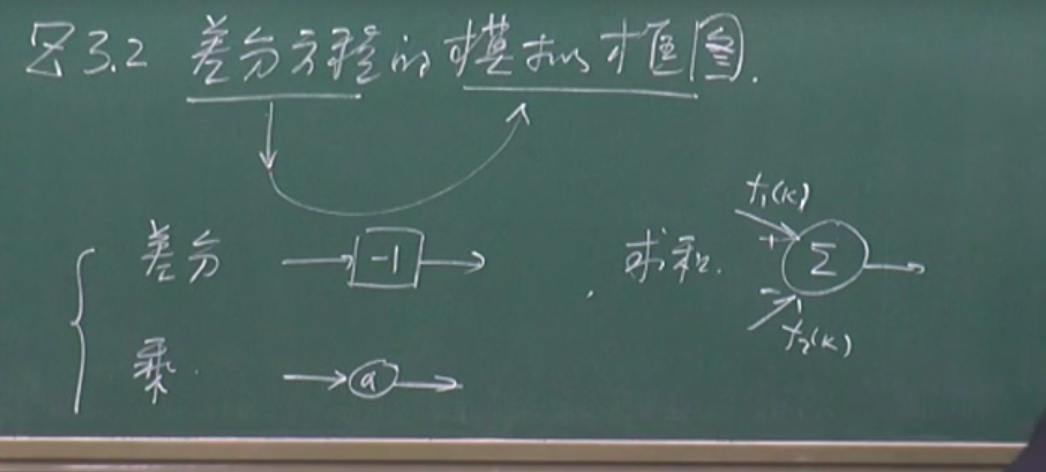 3.2 差分方程的模拟框图.
差分 -1
求和. f₁(k) + Σ - f₂(k)
乘. a